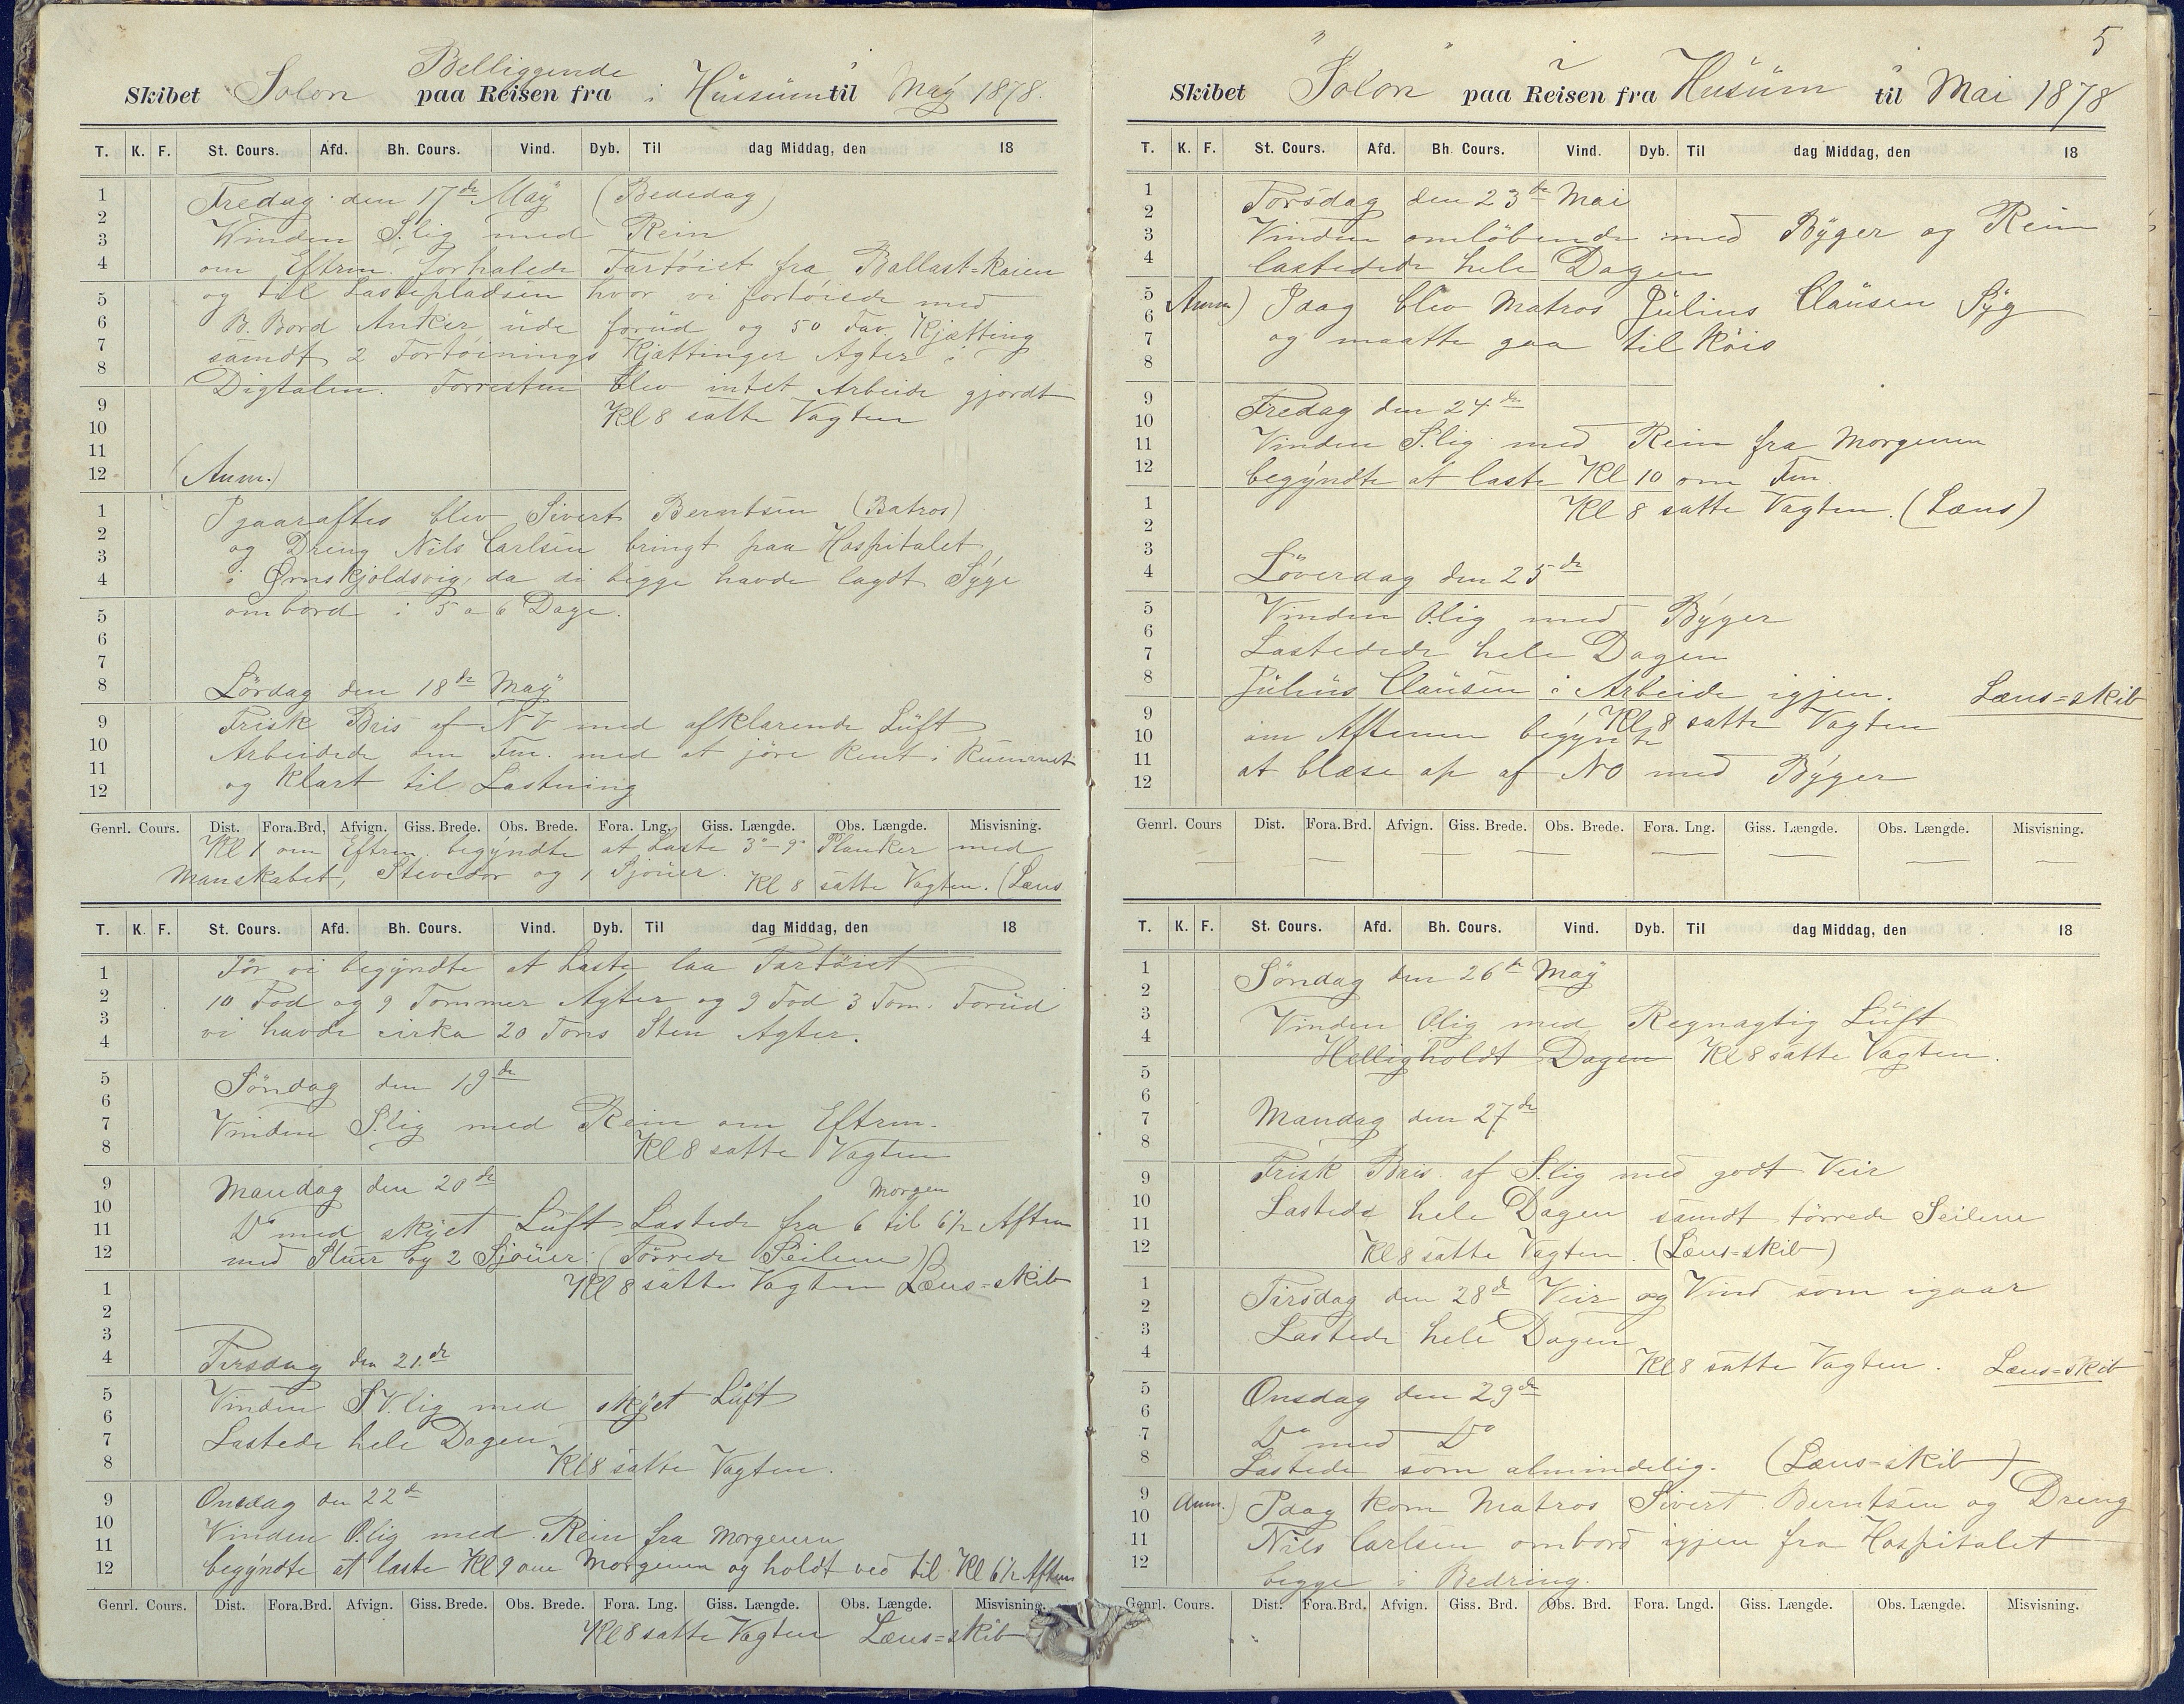 Belliggende
Skibet Solon paa Reisen fra i Hüssüm til Maÿ 1878.
T. K. F. St. Cours. Afd. Bh. Cours. Vind. Dyb. Til dag Middag, den 18
1 2 3 4 5 6 7 8 9 10 11 12
Fredag den 17de Maÿ (Bededag)
Vinden S.lig med Rein
om Eftrm. forhalede Fartöiet fra Ballast=Kaien
og til Lastepladsen hvor vi fortöiede med
B. Bord Anker üde forüd og 50 Fav. Kjætting
samdt 2 Fortöinings Kjættinger Agter i
Digtalen. Forresten blev intet Arbeide gjordt
Kl 8 satte Vagten
(Anm.)
1 2 3 4 5 6 7 8 9 10 11 12
I gaaraftes blev Sivert Berntsen (Batros)
og Dreng Nils Carlsen bringt paa Hospitalet
i Ørnskjoldsvig, da di begge havde lagdt Sÿge
ombord i 5 a 6 Dage.
Lördag den 18de Maÿ
Frisk Bris af NV med afklarende Lüft
Arbeidede om Fm. med at jöre Rent i Rümmet
og Klart til Lastning
Genrl. Cours. Dist. Fora.Brd, Afvign. Giss. Brede. Obs. Brede. Fora. Lng. Giss. Længde. Obs. Længde. Misvisning.
Kl 1 om Eftrm. begÿndte at Laste 3"-9" Planker med
Manskabet, Stevedor og 1 Sjöüer. Kl 8 satte Vagten. (Læns
T. K. F. St. Cours. Afd. Bh. Cours. Vind. Dyb. Til dag Middag, den 18
1 2 3 4 5 6 7 8 9 10 11 12
För vi begÿndte at Laste laa Fartöiet
10 Fod og 9 Tommer Agter og 9 Fod 3 Tom. Forüd
vi havde cirka 20 Tons Sten Agter.
Söndag den 19de
Vinden S.lig med Rein om Eftrm.
Kl 8 satte Vagten
Mandag den 20de
Do med skÿet Lüft Lastede fra 6 Morgen til 6 1/2 Aften
med Stuer og 2 Sjöüer. (Törrede Seilene)
1 2 3 4 5 6 7 8 9 10 11 12
Kl 8 satte Vagten Læns=skib
Tirsdag den 21.de
Vinden SV.lig med skÿet Lüft
Lastede hele Dagen
Kl 8 satte Vagten.
Onsdag den 22de
Vinden O.lig med Rein fra Morgenen
begÿndte at laste Kl 9 om Morgenen og holdt ved til Kl 6 1/2 Aften
Genrl. Cours. Dist. Fora.Brd. Afvign. Giss. Brede. Obs. Brede. Fora. Lng. Giss. Længde. Obs. Længde. Misvisning.
Kl 8 satte Vagten Læns=skib
5
Skibet "Solon" paa Reisen fra i Hüsüm til Mai 1878
T. K. F. St. Cours. Afd. Bh. Cours. Vind. Dyb. Til dag Middag, den 18
1 2 3 4 5 6 7 8 9 10 11 12
Torsdag den 23de Mai
Vinden omlöbende med Bÿger og Rein
lastedede hele Dagen
Anm) Idag blev Matros Jülius Claüsen Sÿg
og maatte gaa til Köis
Fredag den 24de
Vinden S.lig med Rein fra Morgenen
begÿndte at laste Kl 10 om Fm.
1 2 3 4 5 6 7 8 9 10 11 12
Kl 8 satte Vagten. (Læns)
Löverdag den 25de
Vinden O.lig med Bÿger
Lastedede hele Dagen
Jüliüs Claüsen i Arbeide igjen. Læns=skib
Kl 8 satte Vagten
om Aftenen begÿnte
at blæse op af NO med Bÿger
Genrl. Cours Dist. Fora.Brd. Afvign. Giss. Brede. Obs. Brede. Fora. Lng. Giss. Længde. Obs. Længde. Misvisning.
T. K. F. St. Cours. Afd. Bh. Cours. Vind. Dyb. Til dag Middag, den 18
1 2 3 4 5 6 7 8 9 10 11 12
Söndag den 26de Maÿ
Vinden O.lig med Regnagtig Lüft
Helligholdt Dagen Kl 8 satte Vagten.
Mandag den 27de
Frisk Bris af S.lig med godt Veir
Lastede hele Dagen samdt törrede Seilene
Kl 8 satte Vagten. (Læns=skib)
1 2 3 4 5 6 7 8 9 10 11 12
Tirsdag den 28d Veir og Vind som igaar
Lastede hele Dagen
Kl 8 satte Vagten. Læns=skib
Onsdag den 29de
Do med Do
Lastede som almindelig. (Læns=skib)
Anm.) Idag kom Matros Sivert Berntsen og Dreng
Nils Carlsen ombord igjen fra Hospitalet
begge i Bedring.
Genrl. Cours. Dist. Fora.Brd. Afvign. Giss. Brd. Obs. Brd. Fora. Lngd. Giss. Længde. Obs. Længde. Misvisning.